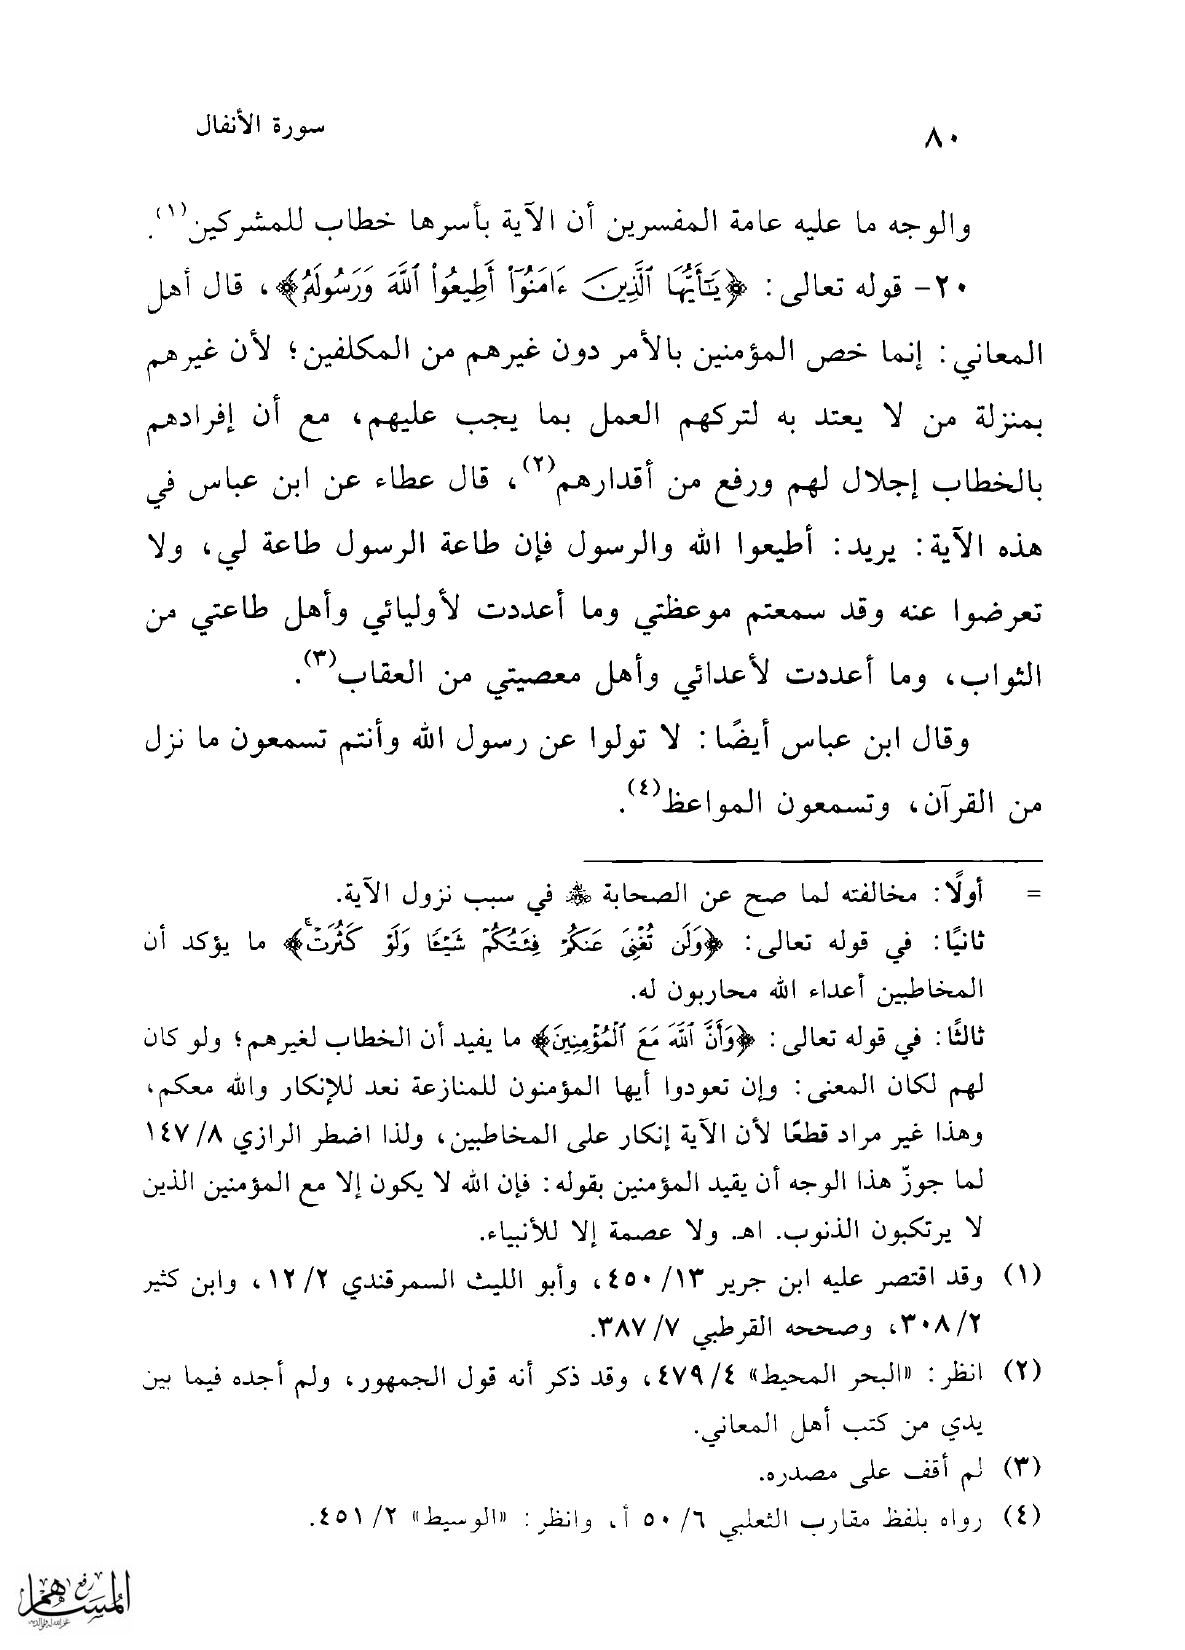 ٨٠ سورة الأنفال
والوجه ما عليه عامة المفسرين أن الآية بأسرها خطاب للمشركين(١).
٢٠- قوله تعالى: ﴿يَٰٓأَيُّهَا ٱلَّذِينَ ءَامَنُوٓاْ أَطِيعُواْ ٱللَّهَ وَرَسُولَهُۥ﴾، قال أهل
المعاني: إنما خص المؤمنين بالأمر دون غيرهم من المكلفين؛ لأن غيرهم
بمنزلة من لا يعتد به لتركهم العمل بما يجب عليهم، مع أن إفرادهم
بالخطاب إجلال لهم ورفع من أقدارهم(٢)، قال عطاء عن ابن عباس في
هذه الآية: يريد: أطيعوا الله والرسول فإن طاعة الرسول طاعة لي، ولا
تعرضوا عنه وقد سمعتم موعظتي وما أعددت لأوليائي وأهل طاعتي من
الثواب، وما أعددت لأعدائي وأهل معصيتي من العقاب(٣).
وقال ابن عباس أيضًا: لا تولوا عن رسول الله وأنتم تسمعون ما نزل
من القرآن، وتسمعون المواعظ(٤).
= أولًا: مخالفته لما صح عن الصحابة ﷺ في سبب نزول الآية.
ثانيًا: في قوله تعالى: ﴿وَلَن تُغْنِىَ عَنكُمْ فِئَتُكُمْ شَيْـًٔا وَلَوْ كَثُرَتْ﴾ ما يؤكد أن
المخاطبين أعداء الله محاربون له.
ثالثًا: في قوله تعالى: ﴿وَأَنَّ ٱللَّهَ مَعَ ٱلْمُؤْمِنِينَ﴾ ما يفيد أن الخطاب لغيرهم؛ ولو كان
لهم لكان المعنى: وإن تعودوا أيها المؤمنون للمنازعة نعد للإنكار والله معكم،
وهذا غير مراد قطعًا لأن الآية إنكار على المخاطبين، ولذا اضطر الرازي ٨/ ١٤٧
لما جوزّ هذا الوجه أن يقيد المؤمنين بقوله: فإن الله لا يكون إلا مع المؤمنين الذين
لا يرتكبون الذنوب. اهـ. ولا عصمة إلا للأنبياء.
(١) وقد اقتصر عليه ابن جرير ١٣/ ٤٥٠، وأبو الليث السمرقندي ٢/ ١٢، وابن كثير
٢/ ٣٠٨، وصححه القرطبي ٧/ ٣٨٧.
(٢) انظر: «البحر المحيط» ٤/ ٤٧٩، وقد ذكر أنه قول الجمهور، ولم أجده فيما بين
يدي من كتب أهل المعاني.
(٣) لم أقف على مصدره.
(٤) رواه بلفظ مقارب الثعلبي ٦/ ٥٠ أ، وانظر: «الوسيط» ٢/ ٤٥١.